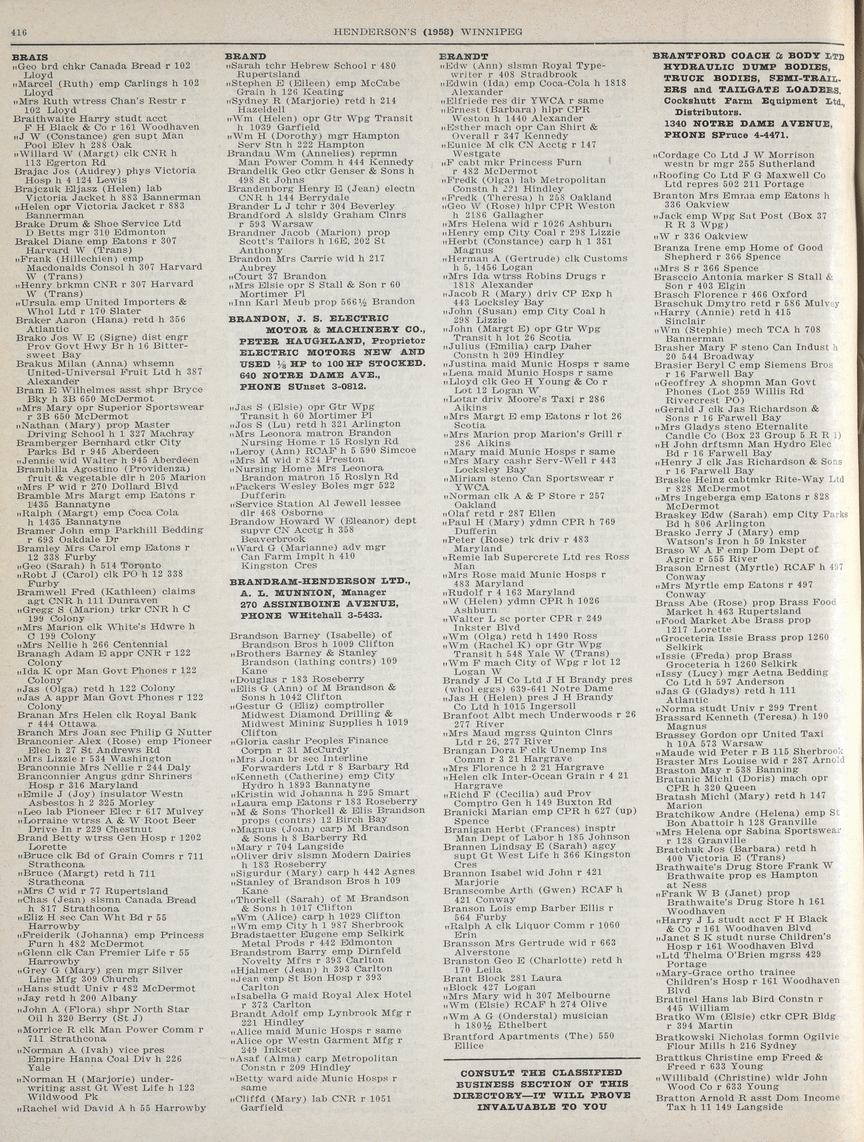 416
HENDERSON'S (1958) WINNIPEG
BRAIS
"Geo brd chkr Canada Bread r 102
Lloyd
"Marcel (Ruth) emp Carlings h 102
Lloyd
"Mrs Ruth wtress Chan's Restr r
102 Lloyd
Braithwaite Harry studt acct
F H Black & Co r 161 Woodhaven
"J W (Constance) gen supt Man
Pool Elev h 288 Oak
"Willard W (Margt) clk CNR h
113 Egerton Rd
Brajac Jos (Audrey) phys Victoria
Hosp h 4 124 Lewis
Brajczuk Eljasz (Helen) lab
Victoria Jacket h 883 Bannerman
"Helen opr Victoria Jacket r 883
Bannerman
Brake Drum & Shoe Service Ltd
D Betts mgr 310 Edmonton
Brakel Diane emp Eatons r 307
Harvard W (Trans)
"Frank (Hillechien) emp
Macdonalds Consol h 307 Harvard
W (Trans)
"Henry brkmn CNR r 307 Harvard
W (Trans)
"Ursula emp United Importers &
Whol Ltd r 170 Slater
Braker Aaron (Hana) retd h 356
Atlantic
Brako Jos W E (Signe) dist engr
Prov Govt Hwy Br h 16 Bitter-
sweet Bay
Brakus Milan (Anna) whsemn
United-Universal Fruit Ltd h 387
Alexander
Bram E Wilhelmes asst shpr Bryce
Bky h 3B 650 McDermot
"Mrs Mary opr Superior Sportswear
r 3B 650 McDermot
"Nathan (Mary) prop Master
Driving School h 1 327 Machray
Bramberger Bernhard ctkr City
Parks Bd r 945 Aberdeen
"Jennie wid Walter h 945 Aberdeen
Brambilla Agostino (Providenza)
fruit & vegetable dlr h 205 Marion
"Mrs P wid r 270 Dollard Blvd
Bramble Mrs Margt emp Eatons r
1435 Bannatyne
"Ralph (Margt) emp Coca Cola
h 1435 Bannatyne
Bramer John emp Parkhill Bedding
r 693 Oakdale Dr
Bramley Mrs Carol emp Eatons r
12 338 Furby
"Geo (Sarah) h 514 Toronto
"Robt J (Carol) clk PO h 12 338
Furby
Bramwell Fred (Kathleen) claims
agt CNR h 111 Dunraven
"Gregg S (Marion) trkr CNR h C
199 Colony
"Mrs Marion clk White's Hdwre h
C 199 Colony
"Mrs Nellie h 266 Centennial
Branagh Adam E appr CNR r 122
Colony
"Ida K opr Man Govt Phones r 122
Colony
"Jas (Olga) retd h 122 Colony
"Jas A appr Man Govt Phones r 122
Colony
Branan Mrs Helen clk Royal Bank
r 444 Ottawa
Branch Mrs Joan sec Philip G Nutter
Branconier Alex (Rose) emp Pioneer
Elec h 27 St Andrews Rd
"Mrs Lizzie r 534 Washington
Branconnie Mrs Nellie r 244 Daly
Branconnier Angus gdnr Shriners
Hosp r 316 Marland
"Emile J (Joy) insulator Westn
Asbestos h 2 325 Morley
"Leo lab Pioneer Elec r 617 Mulvey
"Lorraine wtrss A & W Root Beer
Drive In r 229 Chestnut
Brand Betty wtrss Gen Hosp r 1202
Lorette
"Bruce clk Bd of Grain Comrs r 711
Strathcona
"Bruce (Margt) retd h 711
Strathcona
"Mrs C wid r 77 Rupertsland
"Chas (Jean) slsmn Canada Bread
h 817 Strathcona
"Eliz H sec Can Wht Bd r 55
Harrowby
"Freiderik (Johanna) emp Princess
Furn h 482 McDermot
"Glenn clk Can Premier Life r 55
Harrowby
"Grey G (Mary) gen mgr Silver
Line Mfg 309 Church
"Hans studt Univ r 482 McDermot
"Jay retd h 200 Albany
"John A (Flora) shpr North Star
Oil h 320 Berry (St J)
"Morrice R clk Man Power Comm r
711 Strathcona
"Norman A (Ivah) vice pres
Empire Hanna Coal Div h 226
Yale
"Norman H (Marjorie) under-
writing asst Gt West Life h 123
Wildwood Pk
"Rachel wid David A h 55 Harrowby
BRAND
"Sarah tchr Hebrew School r 480
Rupertsland
"Stephen E (Eileen) emp McCabe
Grain h 126 Keating
"Sydney R (Marjorie) retd h 214
Hazeldell
"Wm (Helen) opr Gtr Wpg Transit
h 1039 Garfield
"Wm H (Dorothy) mgr Hampton
Serv Stn h 222 Hampton
Brandau Wm (Annelies) reprmn
Man Power Comm h 444 Kennedy
Brandelik Geo ctkr Genser & Sons h
498 St Johns
Brandenborg Henry E (Jean) electn
CNR h 144 Berrydale
Brander L J tchr r 304 Beverley
Brandford A slsldy Graham Clnrs
r 593 Warsaw
Brandner Jacob (Marion) prop
Scott's Tailors h 16E, 202 St
Anthony
Brandon Mrs Carrie wid h 217
Aubrey
"Court 37 Brandon
"Mrs Elsie opr S Stall & Son r 60
Mortimer Pl
"Inn Karl Meub prop 566½ Brandon
BRANDON, J. S. ELECTRIC
MOTOR & MACHINERY CO.,
PETER HAUGHLAND, Proprietor
ELECTRIC MOTORS NEW AND
USED ⅛ HP to 100 HP STOCKED.
640 NOTRE DAME AVE.,
PHONE SUnset 3-0812.
"Jas S (Elsie) opr Gtr Wpg
Transit h 60 Mortimer Pl
"Jos S (Lu) retd h 321 Arlington
"Mrs Leonora matron Brandon
Nursing Home r 15 Roslyn Rd
"Leroy (Ann) RCAF h 5 590 Simcoe
"Mrs M wid r 824 Preston
"Nursing Home Mrs Leonora
Brandon matron 15 Roslyn Rd
"Packers Wesley Boles mgr 522
Dufferin
"Service Station Al Jewell lessee
dlr 468 Osborne
Brandow Howard W (Eleanor) dept
supvr CN Acctg h 358
Beaverbrook
"Ward G (Marianne) adv mgr
Can Farm Implt h 410
Kingston Cres
BRANDRAM-HENDERSON LTD.,
A. L. MUNNION, Manager
270 ASSINIBOINE AVENUE,
PHONE WHitehall 3-5433.
Brandson Barney (Isabelle) of
Brandson Bros h 1009 Clifton
"Brothers Barney & Stanley
Brandson (lathing contrs) 109
Kane
"Douglas r 183 Roseberry
"Elis G (Ann) of M Brandson &
Sons h 1042 Clifton
"Gestur G (Eliz) comptroller
Midwest Diamond Drilling &
Midwest Mining Supplies h 1019
Clifton
"Gloria cashr Peoples Finance
Corpn r 31 McCurdy
"Mrs Joan br sec Interline
Forwarders Ltd r 8 Barbary Rd
"Kenneth (Catherine) emp City
Hydro h 1893 Bannatyne
"Kristin wid Johanna h 295 Smart
"Laura emp Eatons r 183 Roseberry
"M & Sons Thorkell & Elis Brandson
props (contrs) 12 Birch Bay
"Magnus (Joan) carp M Brandson
& Sons h 8 Barberry Rd
"Mary r 704 Langside
"Oliver driv slsmn Modern Dairies
h 183 Roseberry
"Sigurdur (Mary) carp h 442 Agnes
"Stanley of Brandson Bros h 109
Kane
"Thorkell (Sarah) of M Brandson
& Sons h 1017 Clifton
"Wm (Alice) carp h 1029 Clifton
"Wm emp City h 1 987 Sherbrook
Bradstaetter Eugene emp Selkirk
Metal Prods r 442 Edmonton
Brandstrom Barry emp Dirnfeld
Novelty Mfrs r 393 Carlton
"Hjalmer (Jean) h 393 Carlton
"Jean emp St Bon Hosp r 393
Carlton
"Isabella G maid Royal Alex Hotel
r 373 Carlton
Brandt Adolf emp Lynbrook Mfg r
221 Hindley
"Alice maid Munic Hosps r same
"Alice opr Westn Garment Mfg r
249 Inkster
"Asaf (Alma) carp Metropolitan
Constn r 209 Hindley
"Betty ward aide Munic Hosps r
same
"Cliffd (Mary) lab CNR r 1051
Garfield
BRANDT
"Edw (Ann) slsmn Royal Type-
writer r 408 Stradbrook
"Edwin (Ida) emp Coca-Cola h 1818
Alexander
"Elfriede res dir YWCA r same
"Ernest (Barbara) hlpr CPR
Weston h 1440 Alexander
"Esther mach opr Can Shirt &
Overall r 347 Kennedy
"Eunice M clk CN Acctg r 147
Westgate
"F cabt mkr Princess Furn
r 482 McDermot
"Fredk (Olga) lab Metropolitan
Constn h 221 Hindley
"Fredk (Theresa) h 258 Oakland
"Geo W (Rose) hlpr CPR Weston
h 2186 Gallagher
"Mrs Helena wid r 1026 Ashburn
"Henry emp City Coal r 298 Lizzie
"Herbt (Constance) carp h 1 351
Magnus
"Herman A (Gertrude) clk Customs
h 5, 1456 Logan
"Mrs Ida wtrss Robins Drugs r
1818 Alexander
"Jacob R (Mary) driv CP Exp h
443 Locksley Bay
"John (Susan) emp City Coal h
298 Lizzie
"John (Margt E) opr Gtr Wpg
Transit h lot 26 Scotia
"Julius (Emilia) carp Daher
Constn h 209 Hindley
"Justina maid Munic Hosps r same
"Lena maid Munic Hosps r same
"Lloyd clk Geo H Young & Co r
Lot 12 Logan W
"Lotar driv Moore's Taxi r 286
Aikins
"Mrs Margt E emp Eatons r lot 26
Scotia
"Mrs Marion prop Marion's Grill r
286 Aikins
"Mary maid Munic Hosps r same
"Mrs Mary cashr Serv-Well r 443
Locksley Bay
"Miriam steno Can Sportswear r
YWCA
"Norman clk A & P Store r 257
Oakland
"Olaf retd r 287 Ellen
"Paul H (Mary) ydmn CPR h 769
Dufferin
"Peter (Rose) trk driv r 483
Maryland
"Remie lab Supercrete Ltd res Ross
Man
"Mrs Rose maid Munic Hosps r
483 Maryland
"Rudolf r 4 163 Maryland
"W (Helen) ydmn CPR h 1026
Ashburn
"Walter L sc porter CPR r 249
Inkster Blvd
"Wm (Olga) retd h 1490 Ross
"Wm (Rachel K) opr Gtr Wpg
Transit h 548 Yale W (Trans)
"Wm F mach City of Wpg r lot 12
Logan W
Brandy J H Co Ltd J H Brandy pres
(whol eggs) 639-641 Notre Dame
"Jas H (Helen) pres J H Brandy
Co Ltd h 1015 Ingersoll
Branfoot Albt mech Underwoods r 26
277 River
"Mrs Maud mgrss Quinton Clnrs
Ltd r 26, 277 River
Brangan Dora P clk Unemp Ins
Comm r 3 21 Hargrave
"Mrs Florence h 2 21 Hargrave
"Helen clk Inter-Ocean Grain r 4 21
Hargrave
"Richd F (Cecilia) aud Prov
Comptro Gen h 149 Buxton Rd
Branicki Marian emp CPR h 627 (up)
Spence
Branigan Herbt (Frances) insptr
Man Dept of Labor h 185 Johnson
Brannen Lindsay E (Sarah) agcy
supt Gt West Life h 366 Kingston
Cres
Brannon Isabel wid John r 421
Marjorie
Branscombe Arth (Gwen) RCAF h
421 Conway
Branson Lois emp Barber Ellis r
564 Furby
"Ralph A clk Liquor Comm r 1060
Erin
Bransson Mrs Gertrude wid r 663
Alverstone
Branston Geo E (Charlotte) retd h
170 Leila
Brant Block 281 Laura
"Block 427 Logan
"Mrs Mary wid h 307 Melbourne
"Wm (Elsie) RCAF h 274 Olive
"Wm A G (Onderstal) musician
h 180½ Ethelbert
Brantford Apartments (The) 550
Ellice
CONSULT THE CLASSIFIED
BUSINESS SECTION OF THIS
DIRECTORY—IT WILL PROVE
INVALUABLE TO YOU
BRANTFORD COACH & BODY LTD
HYDRAULIC DUMP BODIES,
TRUCK BODIES, SEMI-TRAIL-
ERS and TAILGATE LOADERS,
Cockshutt Farm Equipment Ltd.,
Distributors.
1340 NOTRE DAME AVENUE,
PHONE SPruce 4-4471.
"Cordage Co Ltd J W Morrison
westn br mgr 255 Sutherland
"Roofing Co Ltd F G Maxwell Co
Ltd repres 502 211 Portage
Branton Mrs Emma emp Eatons h
336 Oakview
"Jack emp Wpg Sat Post (Box 37
R R 3 Wpg)
"W r 336 Oakview
Branza Irene emp Home of Good
Shepherd r 366 Spence
"Mrs S r 366 Spence
Brasccio Antonia marker S Stall &
Son r 403 Elgin
Brasch Florence r 466 Oxford
Braschuk Dmytro retd r 586 Mulvey
"Harry (Annie) retd h 415
Sinclair
"Wm (Stephie) mech TCA h 708
Bannerman
Brasher Mary F steno Can Indust h
20 544 Broadway
Brasier Beryl C emp Siemens Bros
r 16 Farwell Bay
"Geoffrey A shopmn Man Govt
Phones (Lot 259 Willis Rd
Rivercrest PO)
"Gerald J clk Jas Richardson &
Sons r 16 Farwell Bay
"Mrs Gladys steno Eternalite
Candle Co (Box 23 Group 5 R R 1)
"H John drftsmn Man Hydro Elec
Bd r 16 Farwell Bay
"Henry J clk Jas Richardson & Sons
r 16 Farwell Bay
Braske Heinz cabtmkr Rite-Way Ltd
r 828 McDermot
"Mrs Ingeberga emp Eatons r 828
McDermot
Braskey Edw (Sarah) emp City Parks
Bd h 806 Arlington
Brasko Jerry J (Mary) emp
Watson's Iron h 59 Inkster
Braso W A F emp Dom Dept of
Agric r 555 River
Brason Ernest (Myrtle) RCAF h 497
Conway
"Mrs Myrtle emp Eatons r 497
Conway
Brass Abe (Rose) prop Brass Food
Market h 463 Rupertsland
"Food Market Abe Brass prop
1217 Lorette
"Groceteria Issie Brass prop 1260
Selkirk
"Issie (Freda) prop Brass
Groceteria h 1260 Selkirk
"Issy (Lucy) mgr Aetna Bedding
Co Ltd h 597 Anderson
"Jas G (Gladys) retd h 111
Atlantic
"Norma studt Univ r 299 Trent
Brassard Kenneth (Teresa) h 190
Magnus
Brassey Gordon opr United Taxi
h 10A 573 Warsaw
"Maude wid Peter r B 115 Sherbrook
Braster Mrs Louise wid r 287 Arnold
Braston May r 538 Banning
Bratanic Michl (Doris) mach opr
CPR h 320 Queen
Bratash Michl (Mary) retd h 147
Marion
Bratchikow Andre (Helena) emp St
Bon Abattoir h 128 Granville
"Mrs Helena opr Sabina Sportswear
r 128 Granville
Bratchuk Jos (Barbara) retd h
400 Victoria E (Trans)
Brathwaite's Drug Store Frank W
Brathwaite prop es Hampton
at Ness
"Frank W B (Janet) prop
Brathwaite's Drug Store h 161
Woodhaven
"Harry J L studt acct F H Black
& Co r 161 Woodhaven Blvd
"Janet S K studt nurse Children's
Hosp r 161 Woodhaven Blvd
"Ltd Thelma O'Brien mgrss 429
Portage
"Mary-Grace ortho trainee
Children's Hosp r 161 Woodhaven
Blvd
Bratinel Hans lab Bird Constn r
445 William
Bratko Wm (Elsie) ctkr CPR Bldg
r 394 Martin
Bratkowski Nicholas formn Ogilvie
Flour Mills h 216 Sydney
Brattkus Christine emp Freed &
Freed r 633 Young
"Willibald (Christine) wldr John
Wood Co r 633 Young
Bratton Arnold R asst Dom Income
Tax h 11 149 Langside